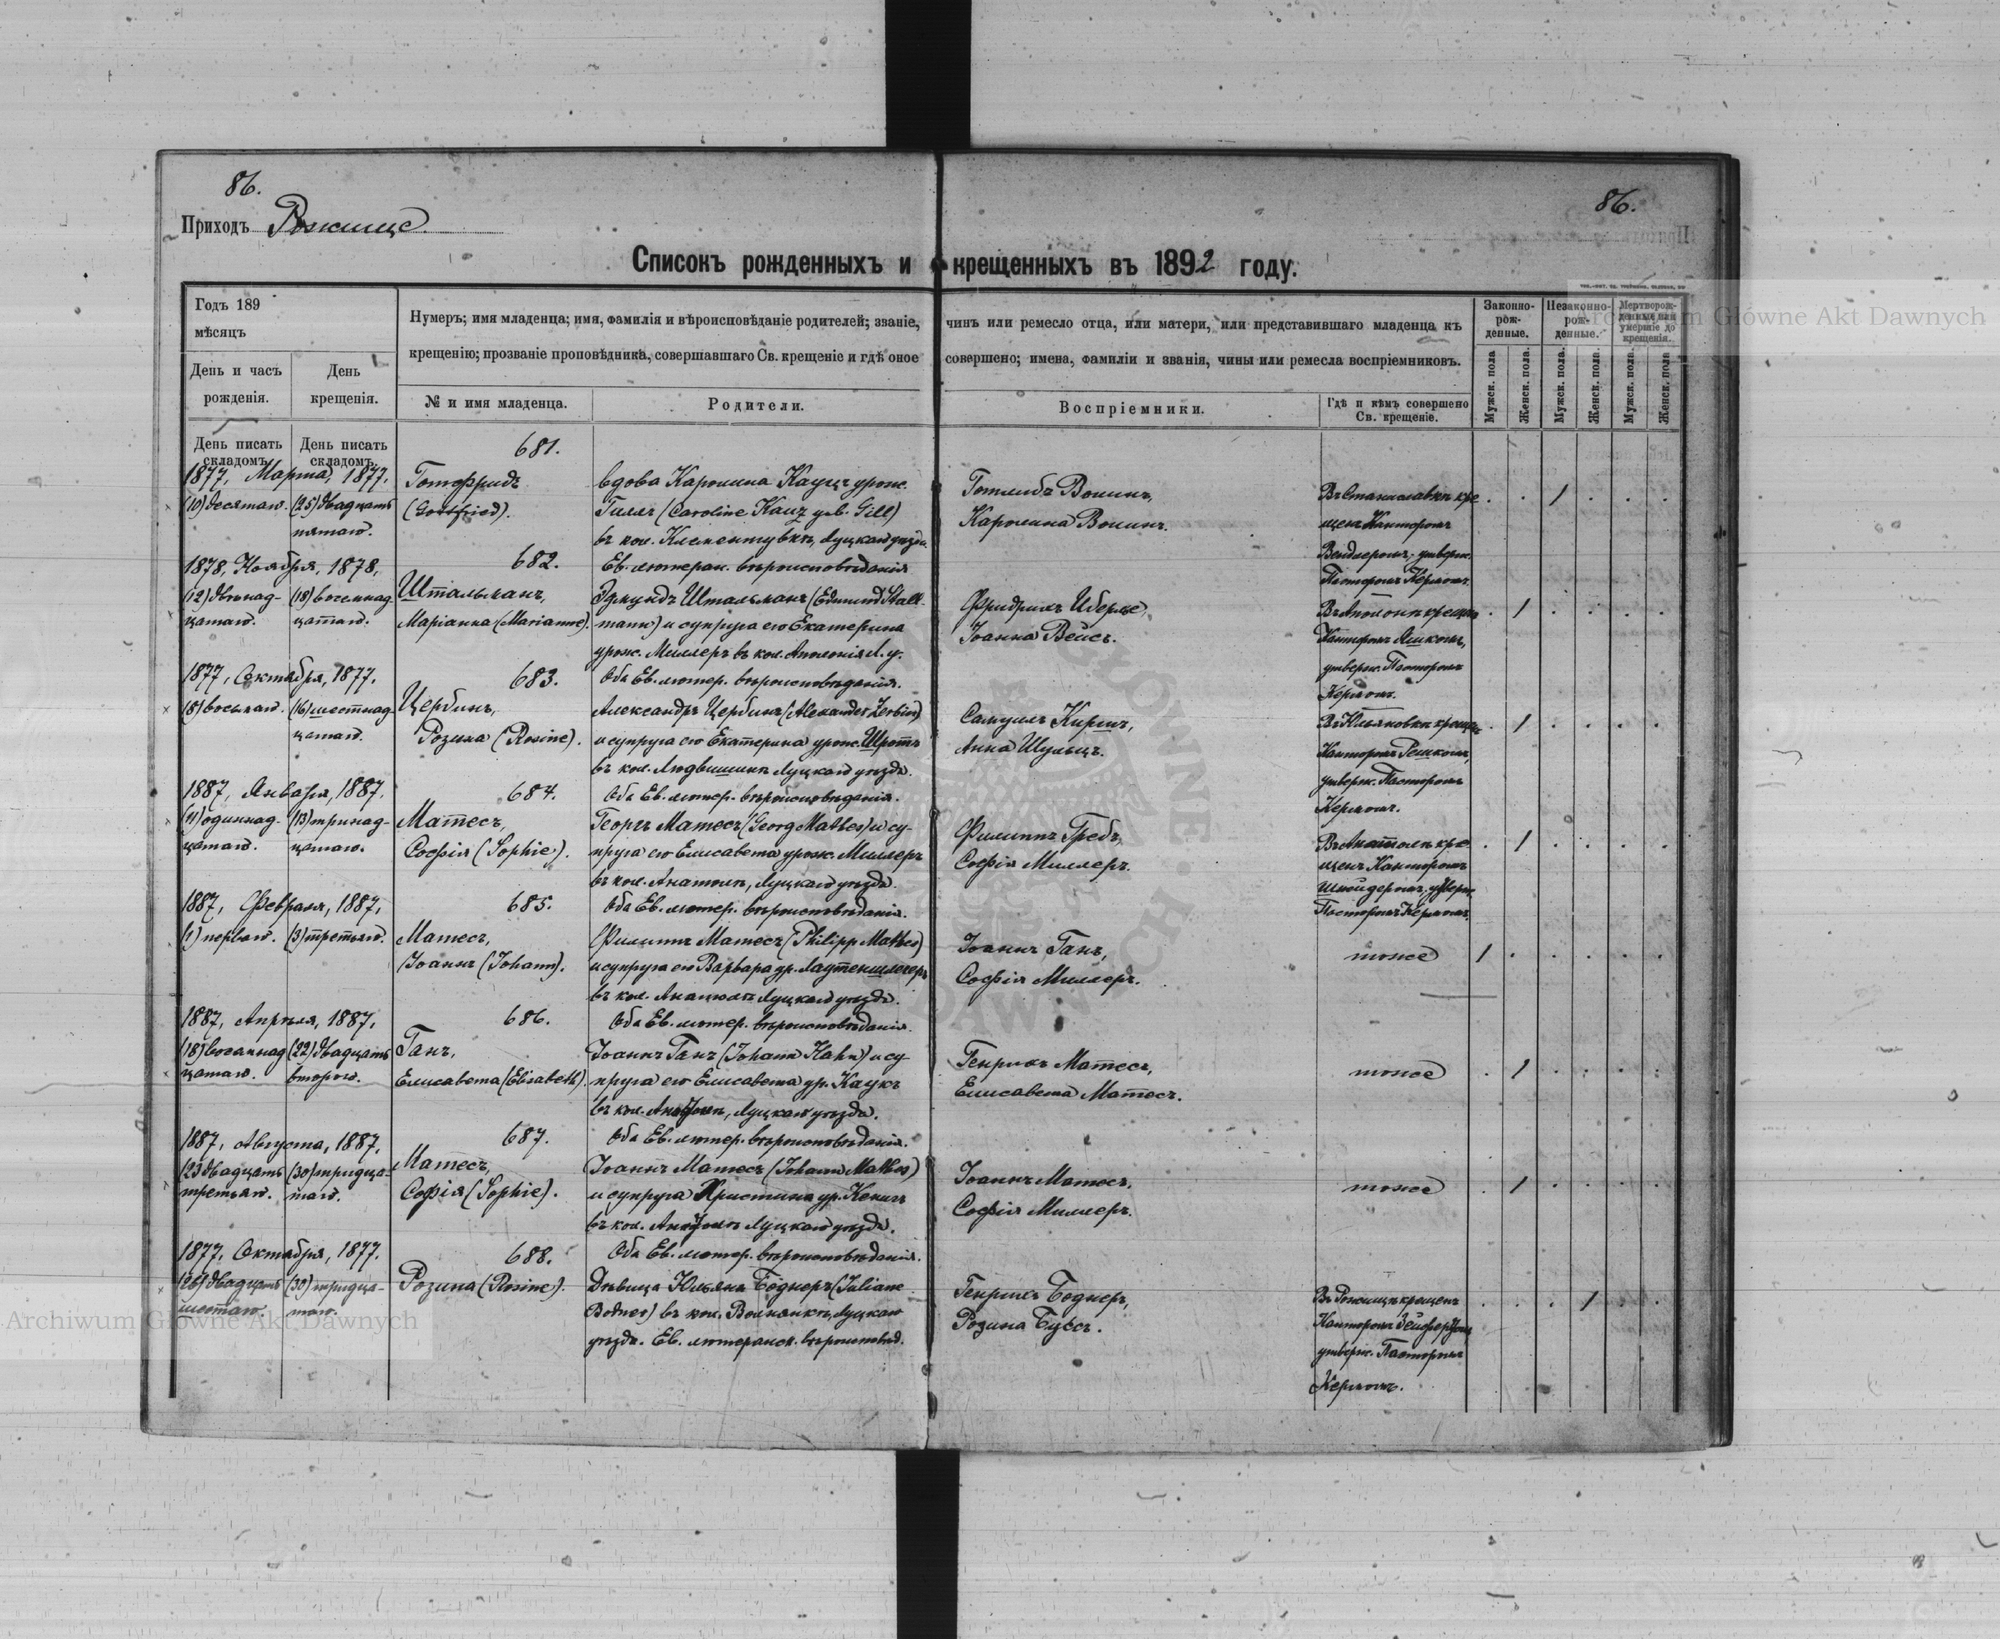 86.
86.
Приходъ Рожище
Списокъ рожденныхъ и крещенныхъ въ 1892 году.
Годъ 189
мѣсяцъ
День и часъ рожденія.
День крещенія.
Нумеръ; имя младенца; имя, фамилія и вѣроисповѣданіе родителей; званіе, чинъ или ремесло отца, или матери, или представившаго младенца къ
крещенію; прозваніе проповѣдника, совершавшаго Св. крещеніе и гдѣ оное совершено; имена, фамиліи и званія, чины или ремесла воспріемниковъ.
№ и имя младенца.
Родители.
Воспріемники.
Гдѣ и кѣмъ совершено
Св. крещеніе.
Законно-
рож-
денные.
Незаконно-
рож-
денные.
Мертворож-
денные или
умершіе до
крещенія.
Мужск. пола
Женск. пола.
Мужск. пола.
Женск. пола.
Мужск. пола.
Женск. пола
День писать складомъ.
День писать складомъ.
681.
1877, Марта, 1877.
(10) десятаго.
(25) двадцать
пятаго.
Готфридъ
(Gottfried).
вдова Каролина Кауцъ урож.
Гилль (Caroline Kauz geb. Gill)
въ кол. Клементувкѣ, Луцкаго уѣзда.
Ев. лютеран. вѣроисповѣданія
Готлибъ Вонинъ,
Каролина Вонинъ.
Въ Станиславкѣ кре
щенъ Канторомъ
утверж.
Пасторомъ Кермомъ.
682.
1878, Ноября, 1878,
(12) двѣнад-
цатаго.
(18) восемнад
цатаго.
Штальманъ,
Маріанна (Marianne).
Эдмундъ Штальманъ (Edmund Stall-
mann) и супруга его Екатерина
урож. Миллеръ въ кол. Аполонія Л. у.
Оба Ев. лютер. вѣроисповѣданія.
Фридрихъ
Іоанна Вейсъ.
Канторомъ Яшкомъ,
утверж. Пасторомъ
Кермомъ.
683.
1877, Октября, 1877.
(8) восьмаго.
(16) шестнад
цатаго.
Цербинъ,
Розина (Rosine).
Александръ Цербинъ (Alexander Zerbin)
и супруга его Екатерина урож. Шротъ
въ кол. Людвишинѣ Луцкаго уѣзда.
Оба Ев. лютер. вѣроисповѣданія.
Самуилъ Киршъ,
Анна Шульцъ.
Въ Юльяновкѣ крещена
Канторомъ
утверж. Пасторомъ
Кермомъ.
684.
1887, Января, 1887.
(11) одиннад-
цатаго.
(13) тринад-
цатаго.
Матесъ,
Софія (Sophie).
Георгъ Матесъ (Georg Mathes) и су-
пруга его Елисавета урож. Миллеръ
въ кол. Анатолѣ, Луцкаго уѣзда.
Оба Ев. лютер. вѣроисповѣданія.
Филиппъ Гребъ,
Софія Миллеръ.
Въ Анатолѣ кре
щенъ Канторомъ
Шнейдеромъ, утверж.
Пасторомъ Кермомъ.
685.
1887, Февраля, 1887,
(1) перваго.
(3) третьяго.
Матесъ,
Іоаннъ (Johann).
Филиппъ Матесъ (Philipp Mathes)
и супруга его Варвара ур. Лаутеншлегеръ
въ кол. Анатолѣ Луцкаго уѣзда.
Оба Ев. лютер. вѣроисповѣданія.
Іоаннъ Ганъ,
Софія Миллеръ.
тоже
686.
1887, Апрѣля, 1887,
(18) восемнад
цатаго.
(22) двадцать
втораго.
Ганъ,
Елисавета (Elisabeth).
Іоаннъ Ганъ (Johann Hahn) и су-
пруга его Елисавета ур. Каукъ
въ кол. Анатолѣ, Луцкаго уѣзда.
Оба Ев. лютер. вѣроисповѣданія.
Генрихъ Матесъ,
Елисавета Матесъ.
тоже
687.
1887, Августа, 1887,
(23) двадцать
третьяго.
(30) тридца-
таго.
Матесъ,
Софія (Sophie).
Іоаннъ Матесъ (Johann Mathes)
и супруга Христина ур. Кенигъ
въ кол. Анатолѣ Луцкаго уѣзда.
Оба Ев. лютер. вѣроисповѣданія.
Іоаннъ Матесъ,
Софія Миллеръ.
тоже
688.
1877, Октября, 1877.
(26) двадцать
шестаго.
(30) тридца-
таго.
Розина (Rosine).
Дѣвица Юльяна Боднеръ (Juliane
Bodner) въ кол. Луцкаго
уѣзда. Ев. лютеранск. вѣроисповѣд.
Генрихъ Боднеръ,
Розина Буссъ.
Въ Рожищѣ крещена
Канторомъ
утверж. Пасторомъ
Кермомъ.
Archiwum Główne Akt Dawnych
Archiwum Główne Akt Dawnych